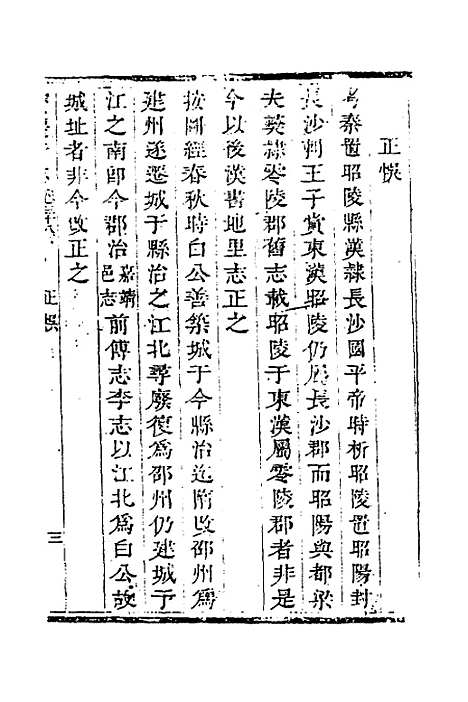 正悞
考秦置昭陵縣漢隷長沙國平帝時析昭陵置昭陽封
長沙剌王子賞東漢昭陵仍屬長沙郡而昭陽與都梁
夫夷隷零陵郡舊志載昭陵于東漢屬零陵郡者非是
今以後漢書地里志正之
按圖經春秋時白公善築城于今縣治迄隋改邵州爲
建州遂遷城于縣治之江北尋廢復爲邵州仍建城于
江之南卽今郡治嘉靖邑志前傅志李志以江北爲白公故
城址者非今改正之
正悞
三